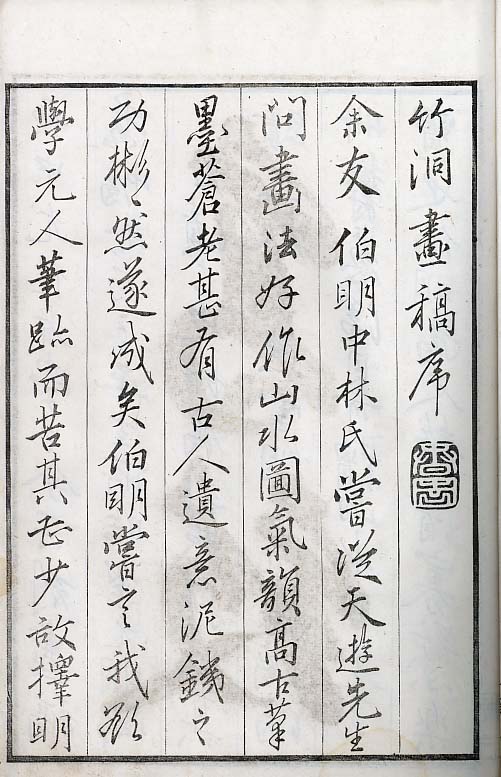 竹洞畫稿序
余友伯明中林氏嘗從天遊先生
問畫法好作山水圖氣韻高古筆
墨蒼老甚有古人遺意泥錢之
功彬〻然遂成矣伯明嘗言我欲
學元人筆跡而苦其少故擇明